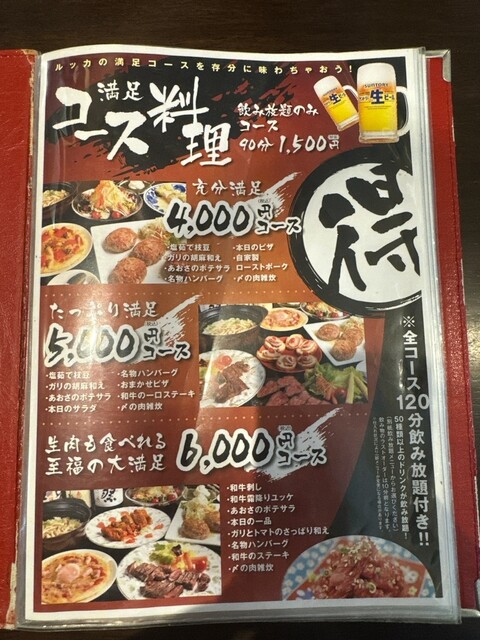 ルッカの満足コースを存分に味わちゃおう!
満足
コース料理
飲み放題のみ
コース
90分1,500円
SUNTORY
生ビール
得
充分満足
4,000円コース
・塩茹で枝豆
・ガリの胡麻和え
・あおさのポテサラ
・名物ハンバーグ
・本日のピザ
・自家製
ローストポーク
・〆の肉雑炊
たっぷり満足
5,000円コース
・塩茹で枝豆
・ガリの胡麻和え
・あおさのポテサラ
・本日のサラダ
・名物ハンバーグ
・おまかせピザ
・和牛の一口ステーキ
・〆の肉雑炊
生肉も食べれる
至福の大満足
6,000円コース
・和牛刺し
・和牛霜降りユッケ
・あおさのポテサラ
・本日の一品
・ガリとトマトのさっぱり和え
・名物ハンバーグ
・和牛のステーキ
・〆の肉雑炊
※全コース120分飲み放題付き!!
50種類以上のドリンクが飲み放題!
(別紙飲み放題メニューからお選びください)
飲み物のラストオーダーは10分前となります。